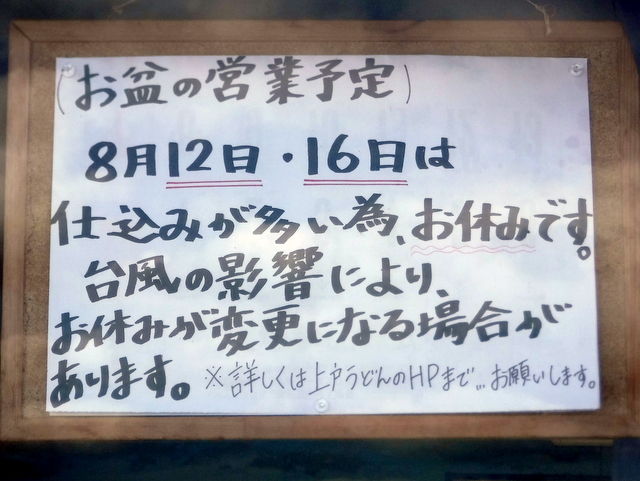 (お盆の営業予定)
8月12日・16日は
仕込みが多い為、お休みです。
台風の影響により、
お休みが変更になる場合が
あります。※詳しくは上戸うどんのHPまで…お願いします。